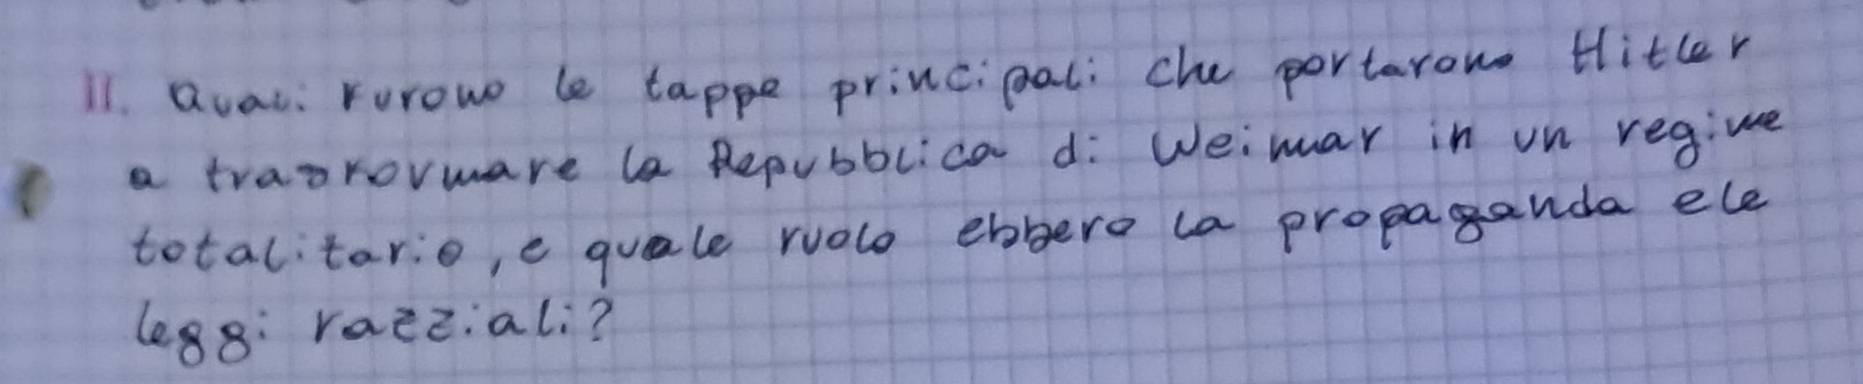 11. Quali furono le tappe principali che portarono Hitler
a trasformare la Repubblica di Weimar in un regime
totalitario, e quale ruolo ebbero la propaganda e le
leggi razziali?